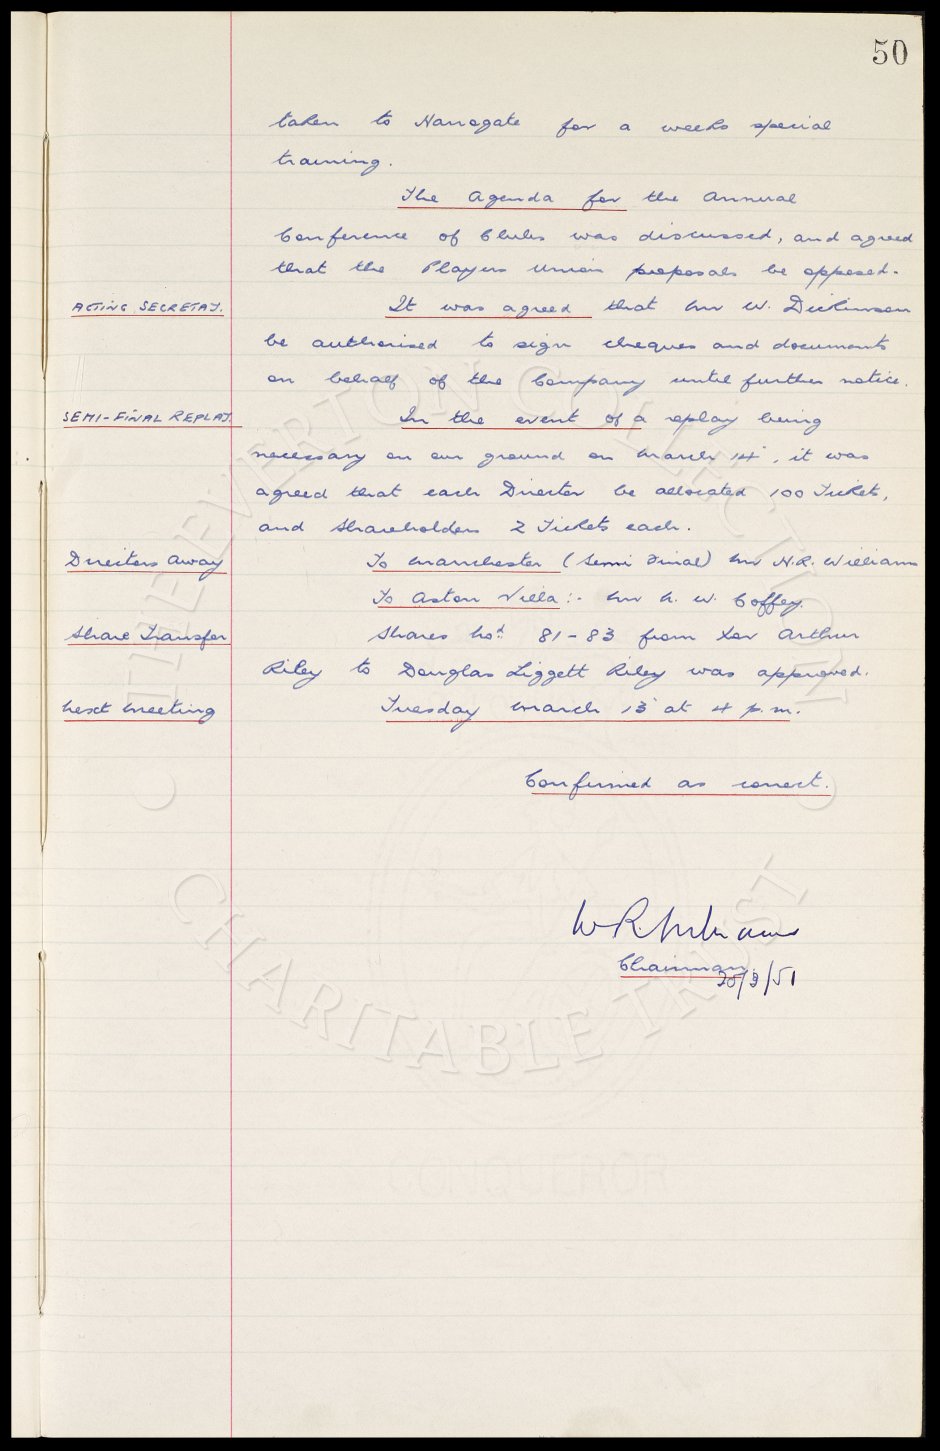 50
taken to Harrogate for a weeks special
training.
The Agenda for the Annual
Conference of Clubs was discussed, and agreed
that the Players Union proposals be opposed.
ACTING SECRETAY. It was agreed that Mr W. Dickinson
be authorised to sign cheques and documents
on behalf of the Company until further notice.
SEMI-FINAL REPLAY. In the event of a replay being
necessary on our ground on March 14, it was
agreed that each Director be allocated 100 Tickets,
and Shareholders 2 Tickets each.
Directors Away To Manchester (Semi Final) Mr N.R. Williams
To Aston Villa :- Mr A. W. Coffey.
Share Transfer Shares Nos. 81-83 from Arthur
Riley to Douglas Liggett Riley was approved.
Next Meeting Tuesday March 13 at 4 p.m.
Confirmed as correct.
W R Williams
Chairman
20/3/51
THE EVERTON COLLECTION
CHARITABLE TRUST
CONQUEROR